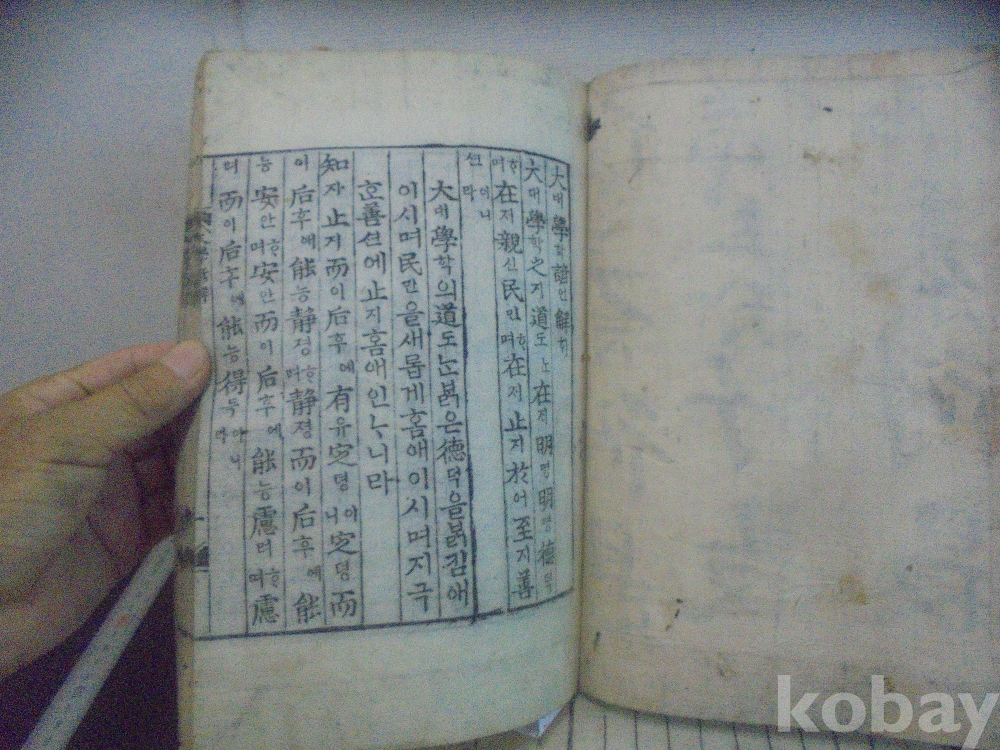 大대學학諺언解ᄒᆡ
大대學학之지道도ᄂᆞᆫ在ᄌᆡ明명明명德덕
ᄒᆞ며在ᄌᆡ親신民민ᄒᆞ며在ᄌᆡ止지於어至지善
션이니라
大대學학의道도ᄂᆞᆫᄇᆞᆰ은德덕을ᄇᆞᆰ김애
이시며民민을새롭게홈애이시며지극
ᄒᆞᆫ善션에止지홈애인ᄂᆞ니라
知지止지而이后후에有유定뎡이니定뎡而
이后후에能능静졍ᄒᆞ며静졍而이后후에能
능安안ᄒᆞ며安안而이后후에能능慮려ᄒᆞ며慮
려而이后후에能능得득이니라
kobay